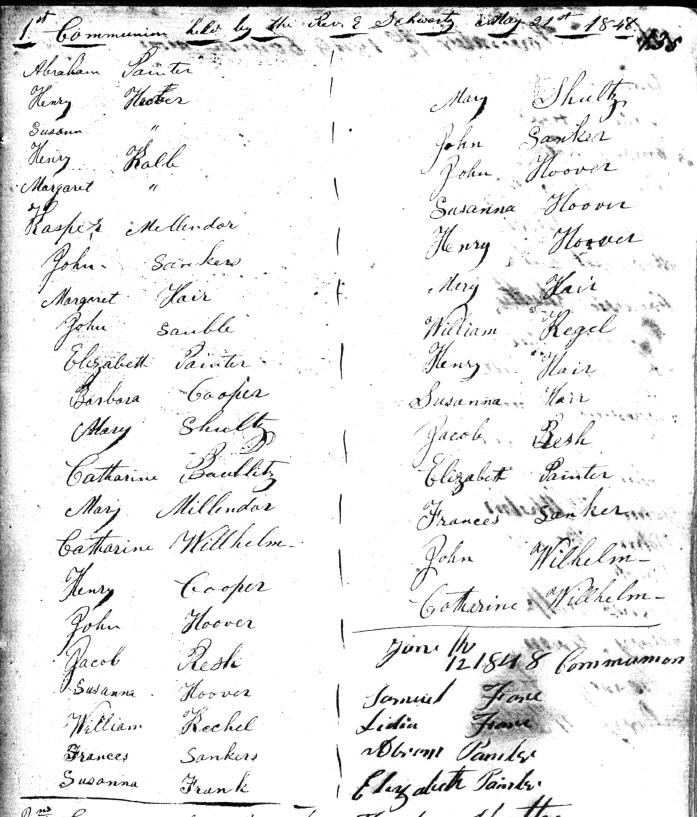 1st Communion held by the Rev. E Schwartz May 21st 1848
Abraham Painter
Henry Hoover
Susann "
Henry Kalb
Margaret "
Kasper Mellendor
John Sankers
Margaret Hair
John Sauble
Elizabeth Painter
Barbara Cooper
Mary Shultz
Catharine Baublitz
Mary Millendor
Catharine Willhelm
Henry Cooper
John Hoover
Jacob Resh
Susanna Hoover
William Rechel
Frances Sankers
Susanna Frank
2nd
Mary Shultz
John Sanker
John Hoover
Susanna Hoover
Henry Hoover
Mary Hair
William Regel
Henry Hair
Susanna Hair
Jacob Resh
Elizabeth Painter
Frances Sanker
John Wilhelm
Catharine Willhelm
June 12 1848 Communion
Samuel
Lidia
Elizabeth